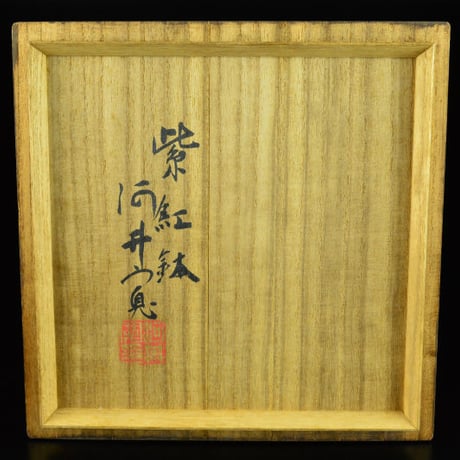 紫紅鉢
河井寛